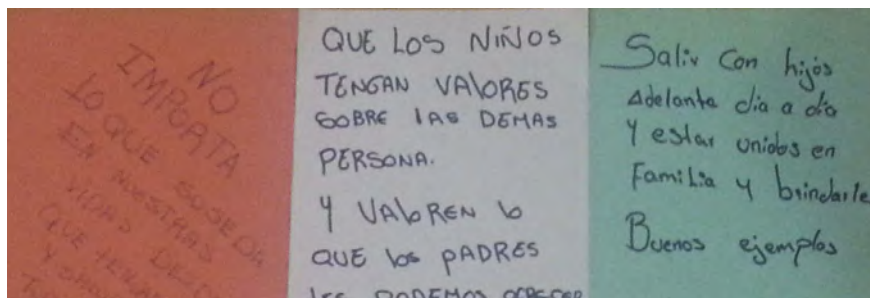 NO
IMPORTA
LO QUE SUSEDA
EN NUESTRAS
VIDAS
QUE
Y
QUE LOS NIÑOS
TENGAN VALORES
SOBRE LAS DEMAS
PERSONA.
Y VALOREN lo
QUE los PADRES
LES PODEMOS OFRECER
Salir con hijos
Adelante dia a día
Y estar unidos en
Familia y brindarle
Buenos ejemplos